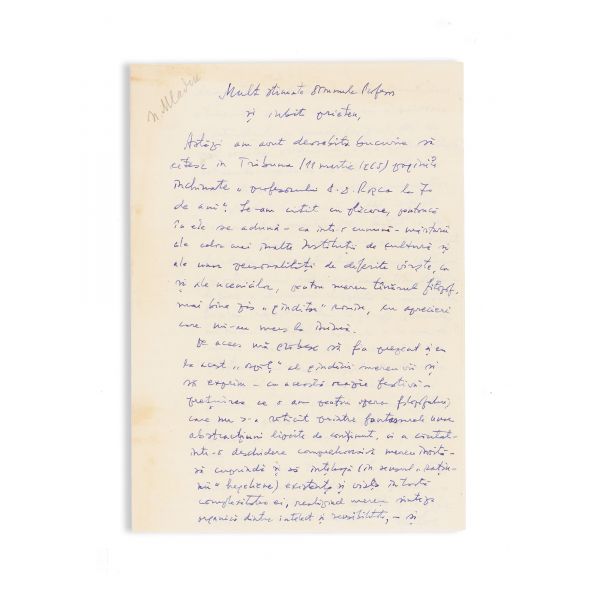 N. Mladin
Mult stimate Domnule Profesor
și iubite prieten,
Astăzi am avut deosebita bucurie să
citesc în Tribuna (11 martie 1965) paginile
închinate „profesorului D. D. Roșca la 70
de ani". Le-am citit cu plăcere, pentrucă
în ele se adună – ca într-o cunună – mărturii
ale celor mai înalte Instituții de cultură și
ale unor personalități de diferite vârste, ca
și ale ucenicilor, pentru mereu tânărul filozof,
mai bine zis „gînditor" român, cu aprecieri
care mi-au mers la inimă.
De aceea mă grăbesc să fiu prezent și eu
la acest al gîndirii omenești și
să exprim – cu această ocazie festivă –
prețuirea ce o am pentru opera filozofului,
care nu s-a rătăcit printre fantasmele unor
abstracțiuni lipsite de conținut, ci a căutat –
într-o deschidere comprehensivă mereu înnoită –
să cuprindă și să înțeleagă (în sensul „rațiu-
nii" hegeliene) existența și viața în toată
complexitatea ei, realizînd mereu sinteza
organică dintre intelect și sensibilitate, – și